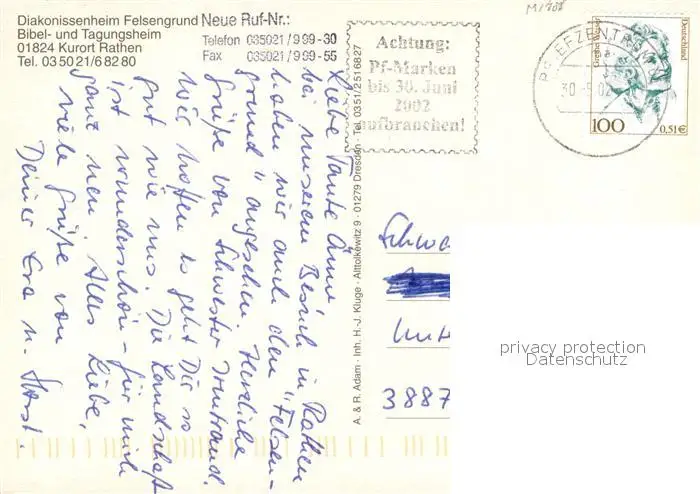 Diakonissenheim Felsengrund
Bibel- und Tagungsheim
01824 Kurort Rathen
Tel. 03 50 21/6 82 80
Neue Ruf-Nr.:
Telefon 035021/9 99-30
Fax 035021/9 99-55
Achtung:
Pf-Marken
bis 30. Juni
2002
aufbrauchen!
EFZENTR
30.-5.02
Grethe Weiser
Deutschland
100
0,51€
Liebe Tante Änne,
bei unserem Besuch in Rathen
haben wir auch den "Felsen-
grund" angesehen. Herzliche
Grüße von Schwester Irmtraud.
Wir hoffen es geht Dir so
gut wie uns. Die Landschaft
ist wunderschön - für mich
ganz neu. Alles Liebe,
viele Grüße von
Deiner Eva u. Horst.
A. & R. Adam · Inh. H.-J. Kluge · Alttolkewitz 9 · 01279 Dresden · Tel. 0351/251 6827
Schwe
3887
privacy protection
Datenschutz